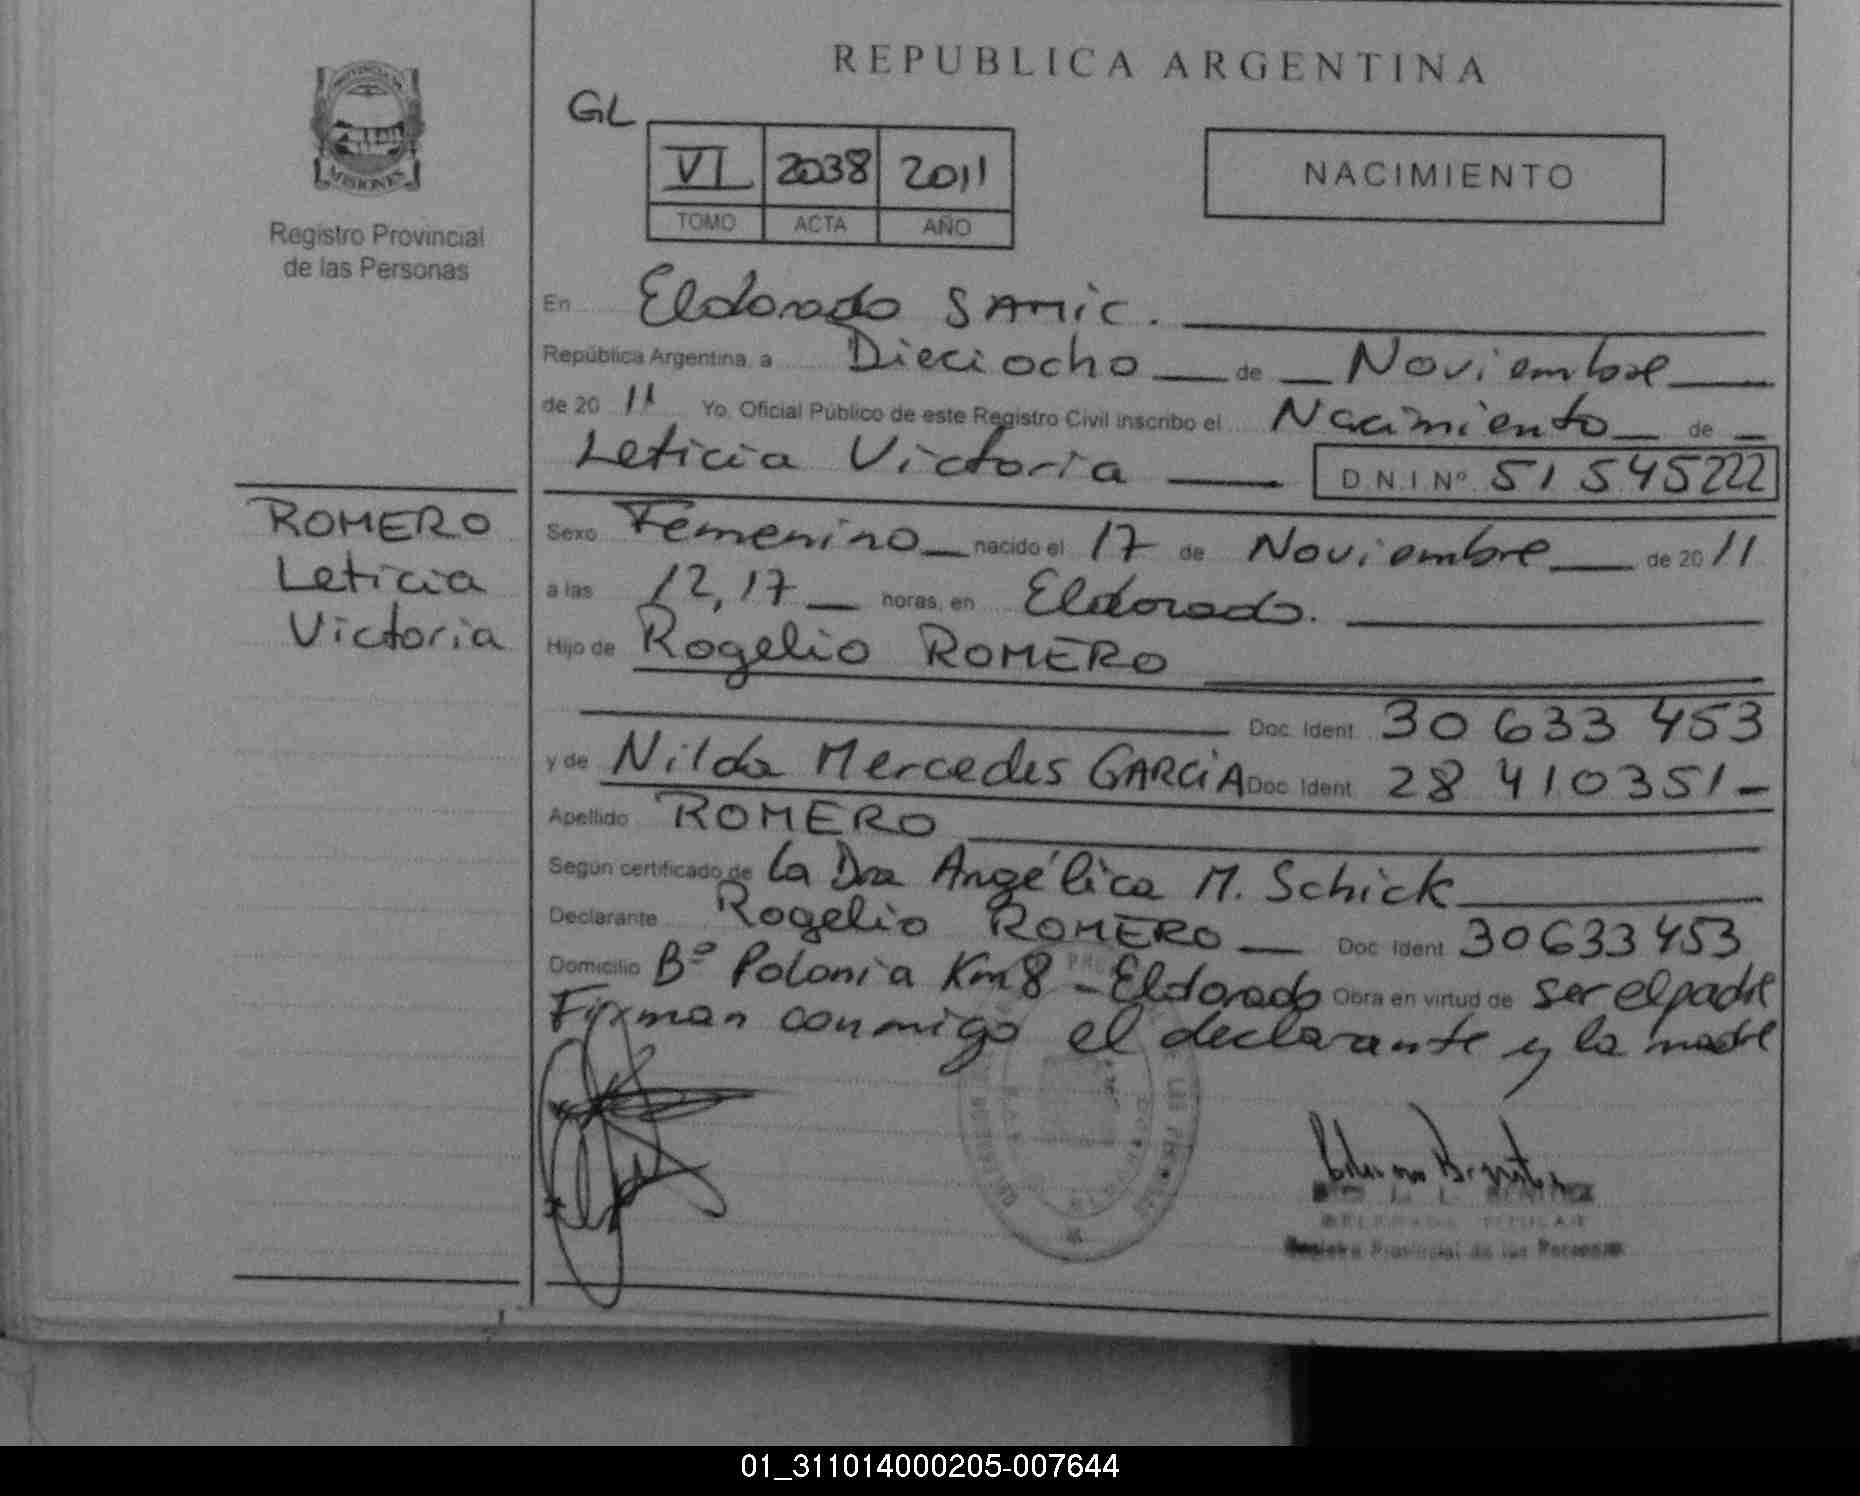 REPUBLICA ARGENTINA
GL
VI 2038 2011
TOMO ACTA AÑO
NACIMIENTO
MISIONES
Registro Provincial
de las Personas
En Eldorado SAMIC.
República Argentina, a Dieciocho de Noviembre
de 20 11 Yo, Oficial Público de este Registro Civil inscribo el Nacimiento de
Leticia Victoria D.N.I.Nº 51 545222
ROMERO
Leticia
Victoria
Sexo Femenino nacido el 17 de Noviembre de 20 11
a las 12,17 horas, en Eldorado.
Hijo de Rogelio ROMERO
Doc. Ident. 30 633 453
y de Nilda Mercedes GARCIA Doc. Ident. 28 410351-
Apellido ROMERO
Según certificado de la Dra Angélica M. Schick
Declarante Rogelio ROMERO Doc. Ident. 30633453
Domicilio Bº Polonia Km 8 - Eldorado Obra en virtud de ser el padre
Firman conmigo el declarante y la madre
Registro Provincial de las Personas
01_311014000205-007644